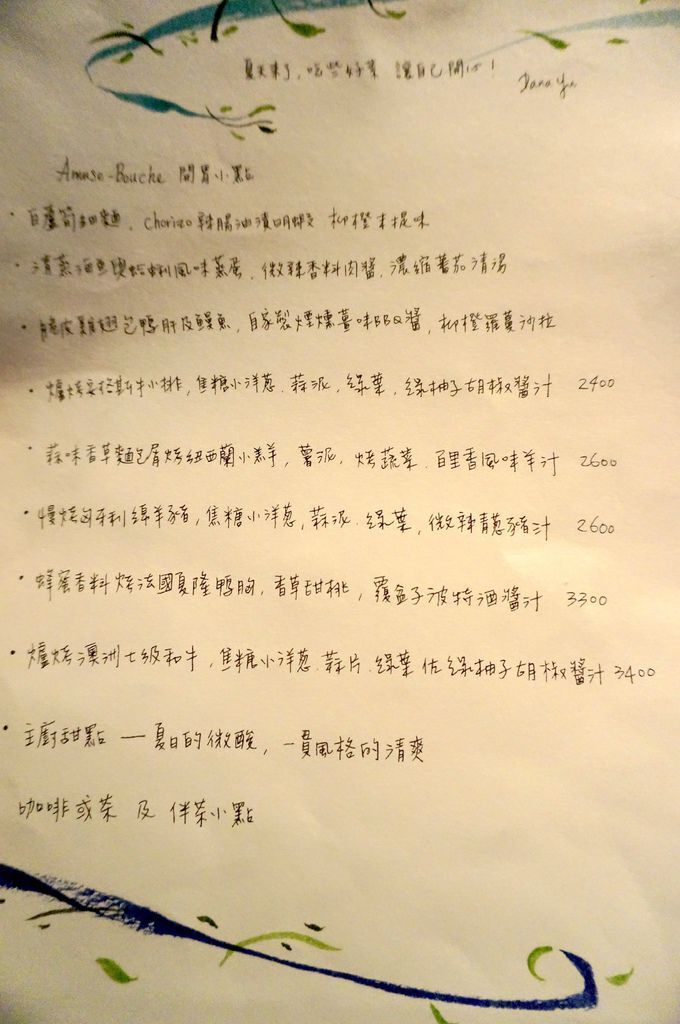 夏天來了，吃些好菜 讓自己開心！
Dana Yu
Amuse-Bouche 開胃小點
白蘆筍細麵，chorizo 辣腸油漬明蝦 柳橙末提味
清蒸海魚貝蛤蜊風味蒸蛋，微辣香料肉醬，濃縮蕃茄清湯
脆皮雞翅包鴨肝及鰻魚，自家製煙燻薯味BBQ醬，柳橙羅蔓沙拉
爐烤安格斯牛小排，焦糖小洋蔥，蒜泥，綠葉，綠柚子胡椒醬汁 2400
蒜味香草麵包屑烤紐西蘭小羔羊，薯泥，烤蔬菜，百里香風味羊汁 2600
慢烤匈牙利綿羊豬，焦糖小洋蔥，蒜泥，綠葉，微辣青蔥豬汁 2600
蜂蜜香料烤法國夏隆鴨胸，香草甜桃，覆盆子波特酒醬汁 3300
爐烤澳洲七級和牛，焦糖小洋蔥，蒜片，綠葉 佐綠柚子胡椒醬汁 3400
主廚甜點 — 夏日的微酸，一貫風格的清爽
咖啡或茶 及 伴茶小點